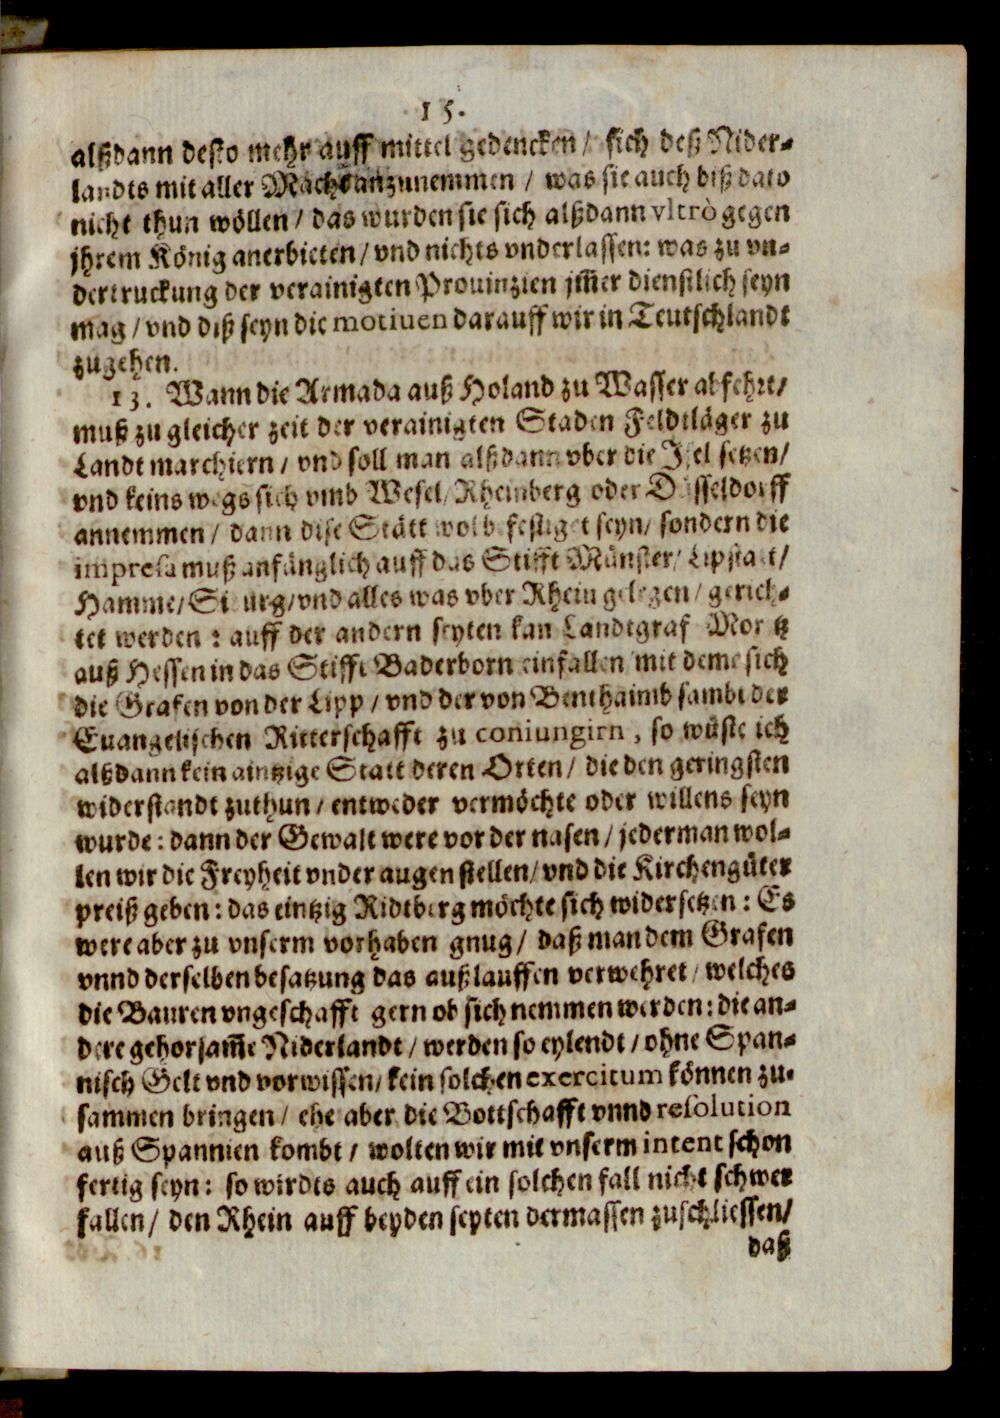 15.
alßdann desto mehr auff mittel gedencken / sich deß Nider-
landts mit aller Macht anzunemmen / was sie auch diß dato
nicht thun wöllen / das wurden sie sich alßdann vltrò gegen
jhrem König anerbieten / vnd nichts vnderlassen: was zu vn-
dertruckung der verainigten Prouinzien jm̃er dienstlich seyn
mag / vnd diß seyn die motiuen darauff wir in Teutschlandt
zugehen.
13. Wann die Armada auß Holand zu Wasser abfehrt/
muß zu gleicher zeit der verainigten Staden Feldtläger zu
Landt marchiern / vnd soll man alßdann vber die Isel setzen/
vnd keins wegs sich vmb Wesel / Rheinberg oder Düsseldorff
annemmen / dann dise Stätt wol befestiget seyn / sondern die
impresa muß anfänglich auff das Stifft Münster / Lipstatt/
Hamme / vnd alles was vber Rhein gelegen / gerich-
tet werden : auff der andern seyten kan Landtgraf Moritz
auß Hessen in das Stifft Baderborn einfallen mit deme sich
die Grafen von der Lipp / vnd der von Benthaimb sambt der
Euangelischen Ritterschafft zu coniungirn , so wüste ich
alßdann kein aintzige Statt deren Orten / die den geringsten
widerstandt zuthun / entweder vermöchte oder willens seyn
wurde : dann der Gewalt were vor der nasen / jederman wol-
len wir die Freyheit vnder augen stellen / vnd die Kirchengüter
preiß geben : das eintzig Ridtberg möchte sich widersetzen : Es
were aber zu vnserm vorhaben gnug / daß man dem Grafen
vnnd derselben besatzung das außlauffen verwehret / welches
die Bauren vngeschafft gern ob sich nemmen werden : die an-
dere gehorsam̃e Niderlandt / werden so eylendt / ohne Span-
nisch Gelt vnd vorwissen / kein solchen exercitum können zu-
sammen bringen / ehe aber die Bottschafft vnnd resolution
auß Spannien kombt / wolten wir mit vnserm intent schon
fertig seyn : so wirdts auch auff ein solchen fall nicht schwer
fallen / den Rhein auff beyden seyten dermassen zuschliessen/
daß